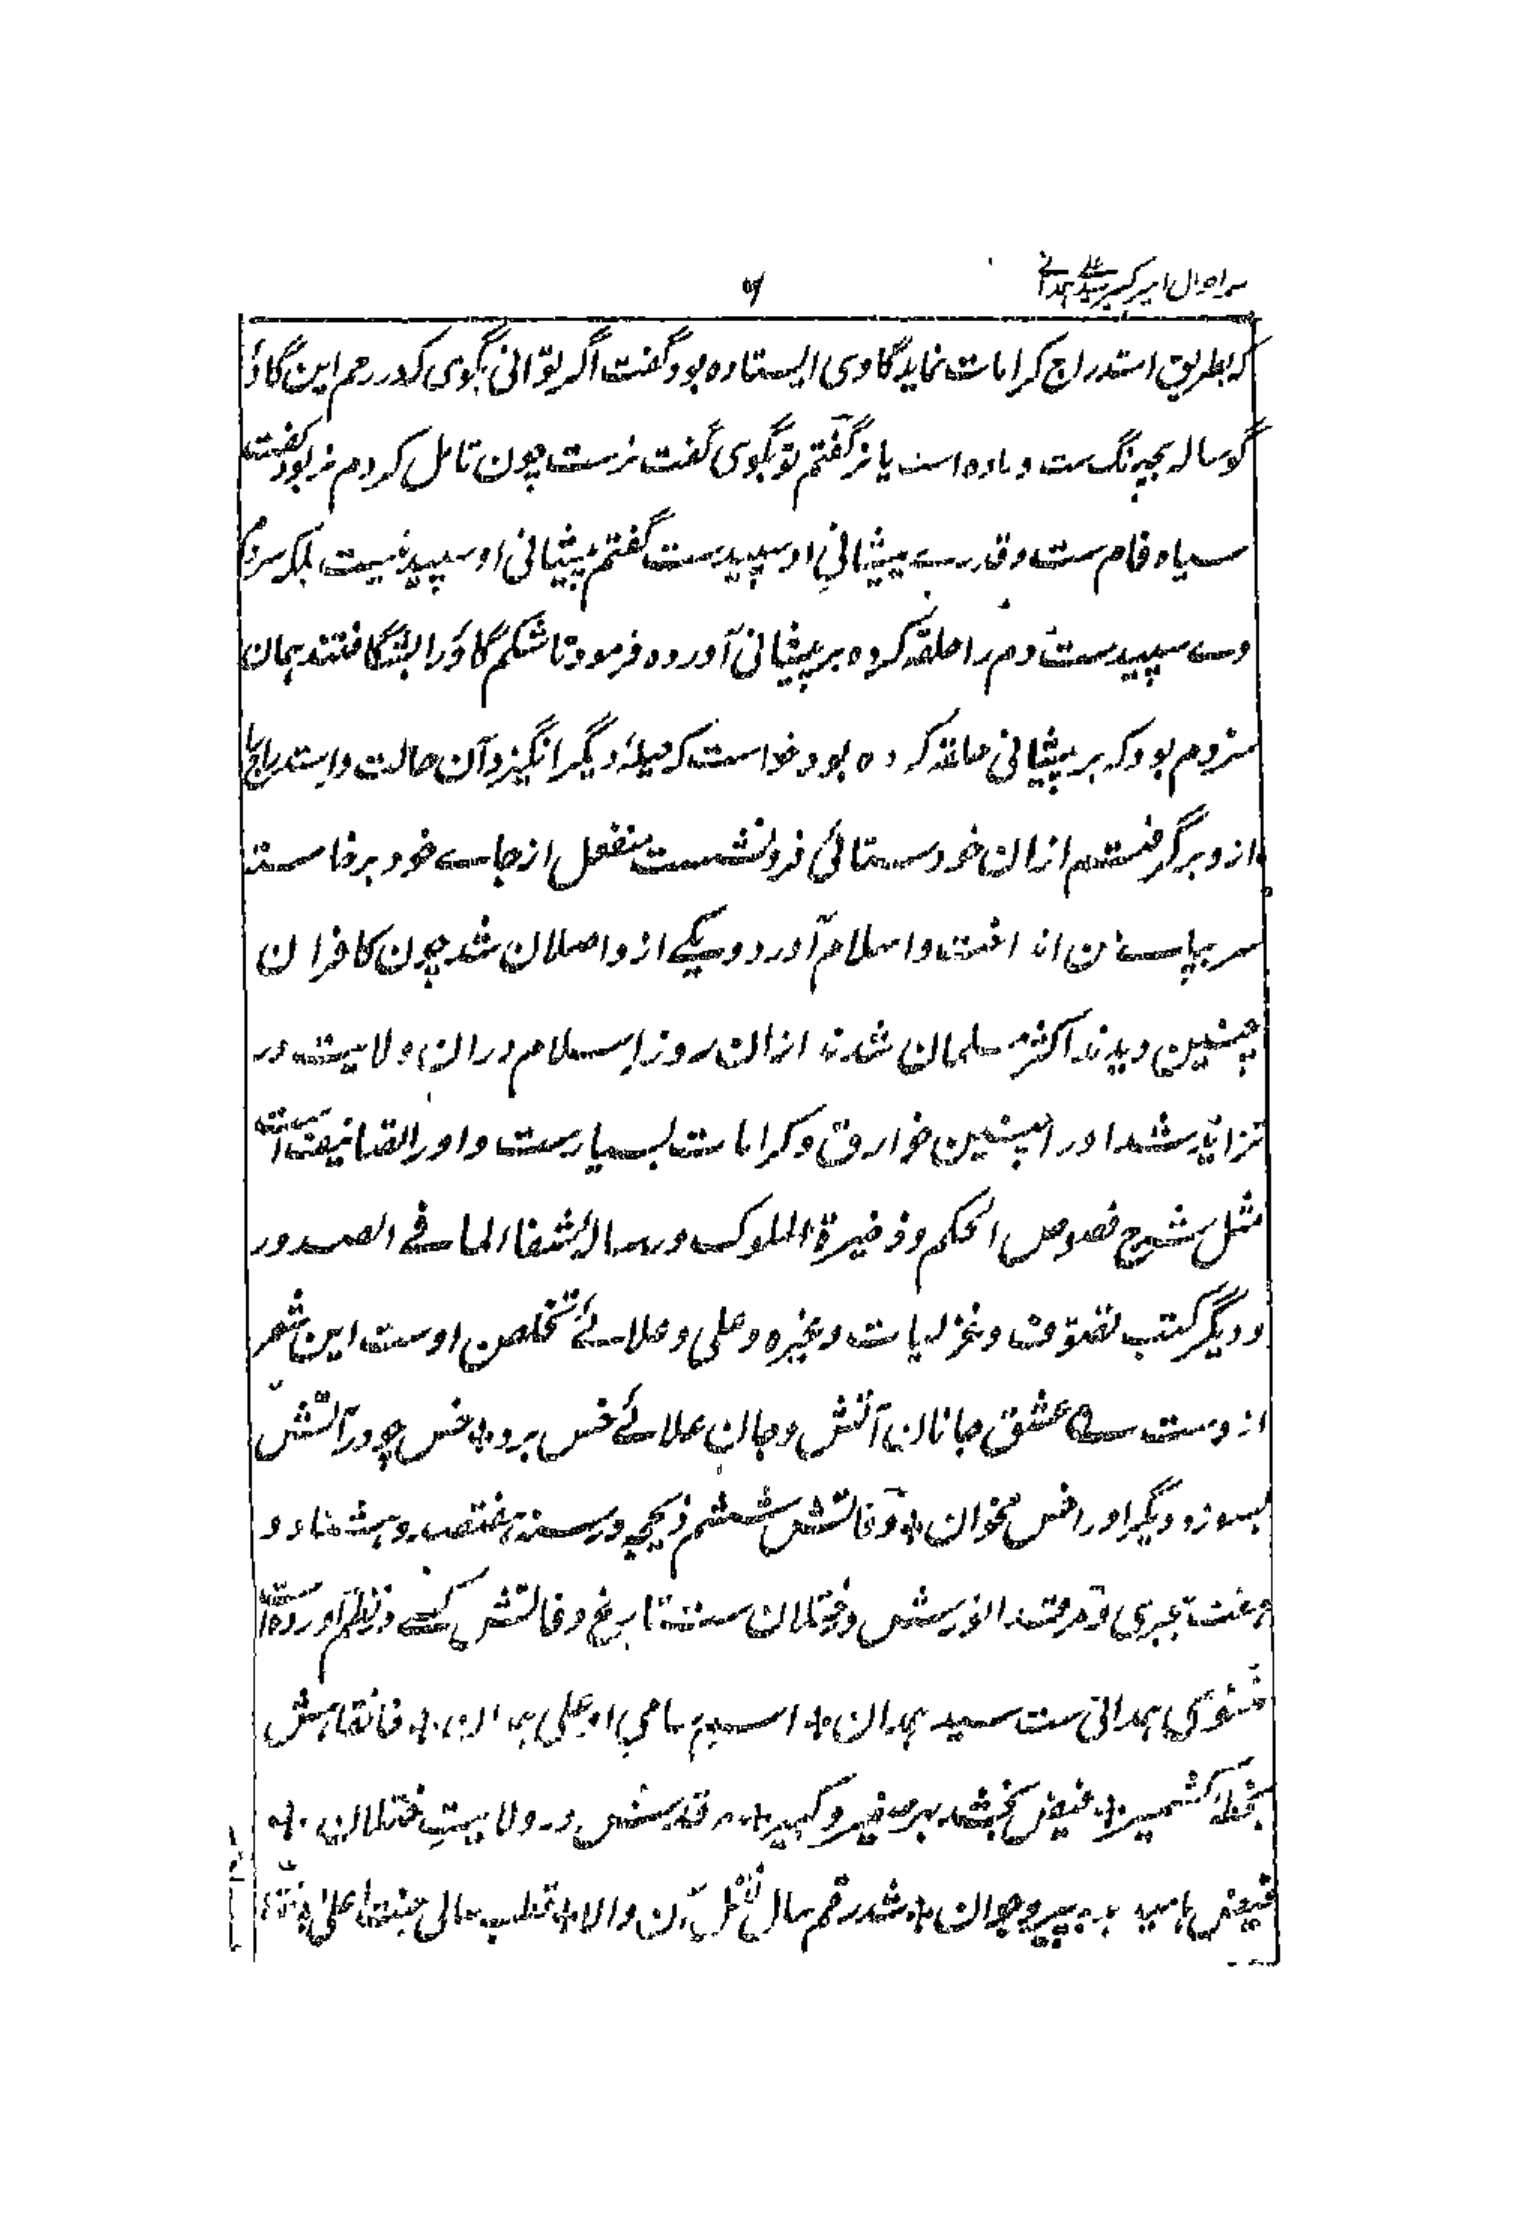 احوال امیر کبیر سید علی ہمدانی
۶
که بطریق استدراج کرامات نماید گاوی ایستاده بود گفت اگر توانی بگوی که در رحم این گاؤ
گوساله بچه رنگ ست و ماده است یا نر گفتم تو بگوی گفت نرست چون تامل کردم نر بود گفت
سیاه فام ست و قدرے پیشانیِ او سپیدست گفتم پیشانی او سپید نیست بلکه سر دم
وے سپیدست و دم را حلقه کرده بر پیشانی آورده فرمود تا شکم گاؤ را بشگافتند همان
سر دم بود که بر پیشانی حلقه کرده بود خواست که حیلهٔ دیگر انگیزد آن حالت و استدراج را
از و برگرفتم ازان خودستائی فرونشست منفعل از جاے خود برخاسته
سر بپاے من انداخت و اسلام آورد و یکے از واصلان شد چون کافران
چنین دیدند اکثر مسلمان شدند ازان روز اسلام دران ولایت در
تزاید شد او را اینچنین خوارق و کرامات بسیارست و او را تصانیف است
مثل شرح فصوص الحکم و ذخیرة الملوک و رساله شفا الما فے الصدور
و دیگر کتب تصوّف و غزلیات و غیره و علی و علائے تخلص اوست این شعر
ازوست ے عشق جانان آتش و جان علائے خس برو ٭ خس چو در آتش
بسوزد دیگر او را خس مخوان ٭ وفاتش ششم ذیحجه در سنه هفتصد و هشتاد و
هفت هجری و مرقد انورش در ختلان ست تاریخ وفاتش کسے در نظم آورده است
مثنوی همدانی ست سید همدان ٭ اسمِ سامیِ او علی همدان ٭ خانقاهش
بخطهٔ کشمیر ٭ فیض بخشد بهر صغیر و کبیر ٭ مرقدش در ولایتِ ختلان ٭
فیض بخشد به پیر و جوان ٭ شد رقم سال نقل آن والا ٭ قطب عالی جنت اعلیٰ